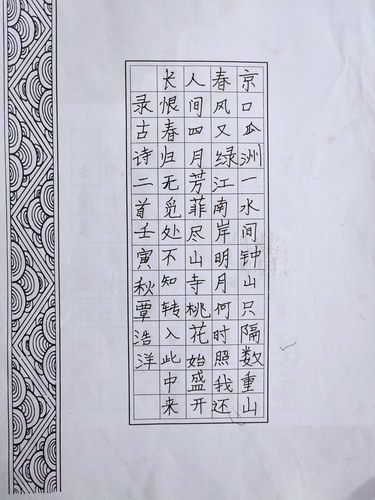 京口瓜洲一水间钟山只隔数重山
春风又绿江南岸明月何时照我还
人间四月芳菲尽山寺桃花始盛开
长恨春归无觅处不知转入此中来
录古诗二首壬寅秋覃浩洋